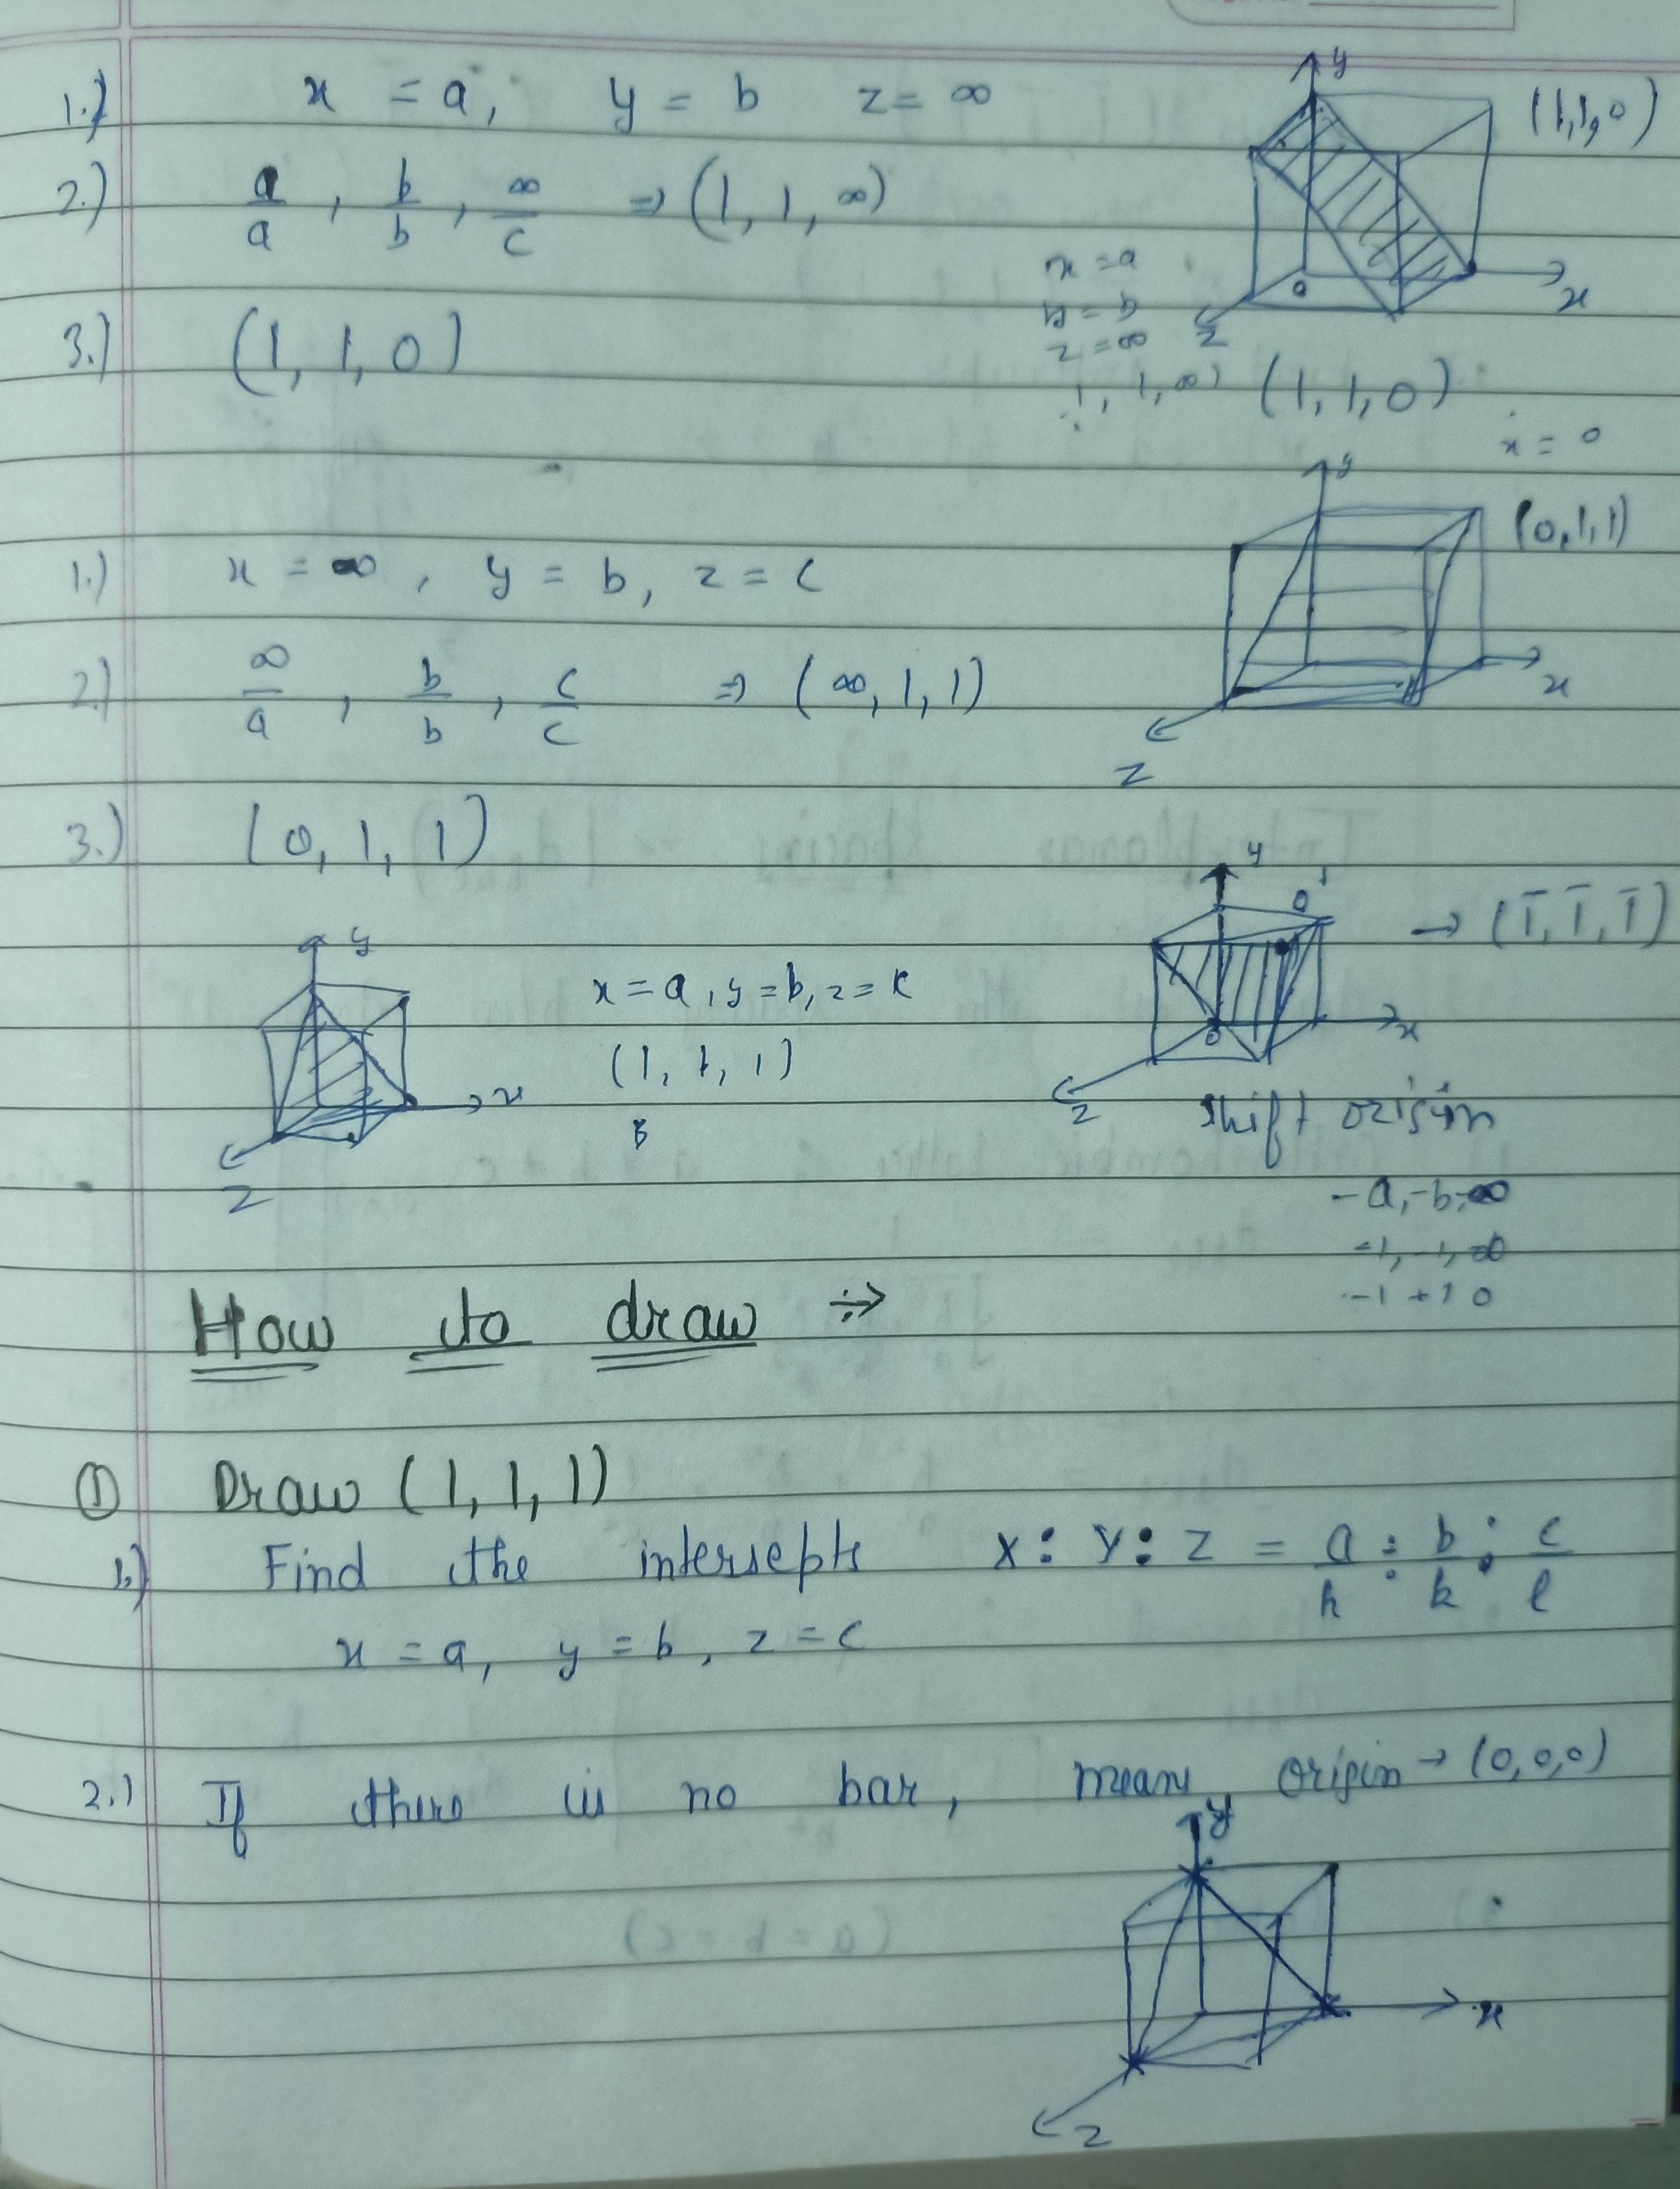 1.) x = a, y = b z = ∞
2.) a/a , b/b , ∞/c ⇒ (1, 1, ∞)
3.) (1, 1, 0)
y
(1,1,0)
x
z
o
x = a
y = b
z = ∞
1, 1, ∞) (1,1,0)
x = 0
1.) x = ∞ , y = b, z = c
2.) ∞/a , b/b , c/c ⇒ (∞, 1, 1)
3.) (0, 1, 1)
y
(0,1,1)
x
z
y
x
z
x = a, y = b, z = c
(1, 1, 1)
y
o'
→ (1̄, 1̄, 1̄)
o
x
z
shift origin
-a, -b, ∞
-1, -1, ∞
-1 +1 0
How to draw ÷→
① Draw (1, 1, 1)
1.) Find the intersepts x : y : z = a/h : b/k : c/l
x = a, y = b, z = c
2.) If there is no bar, means origin → (0,0,0)
y
x
z